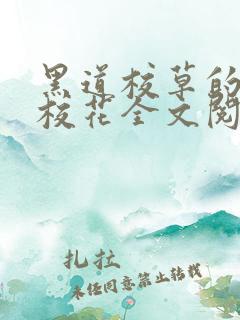 黑道校草的
校花全文阅
扎拉
未经同意禁止转载